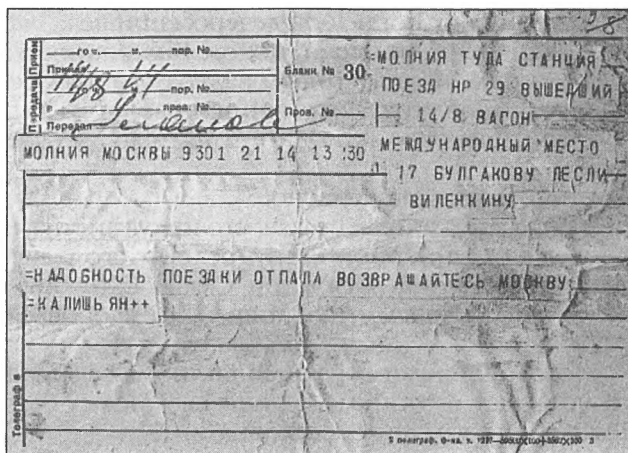 Прием
го ч. м. пор. №
Принял
го ч. м. пор. №
Передача
в пров. №
Передал
Бланк № 30
Пров. №
=МОЛНИЯ ТУДА СТАНЦИЯ
ПОЕЗД НР 29 ВЫШЕДШИЙ
14/8 ВАГОН
МЕЖДУНАРОДНЫЙ МЕСТО
17 БУЛГАКОВУ ЛЕСЛИ
ВИЛЕНКИНУ
МОЛНИЯ МОСКВЫ 9301 21 14 13:30
=НАДОБНОСТЬ ПОЕЗДКИ ОТПАЛА ВОЗВРАЩАЙТЕСЬ МОСКВУ:
=КАЛИШЬЯН++
Телеграф в